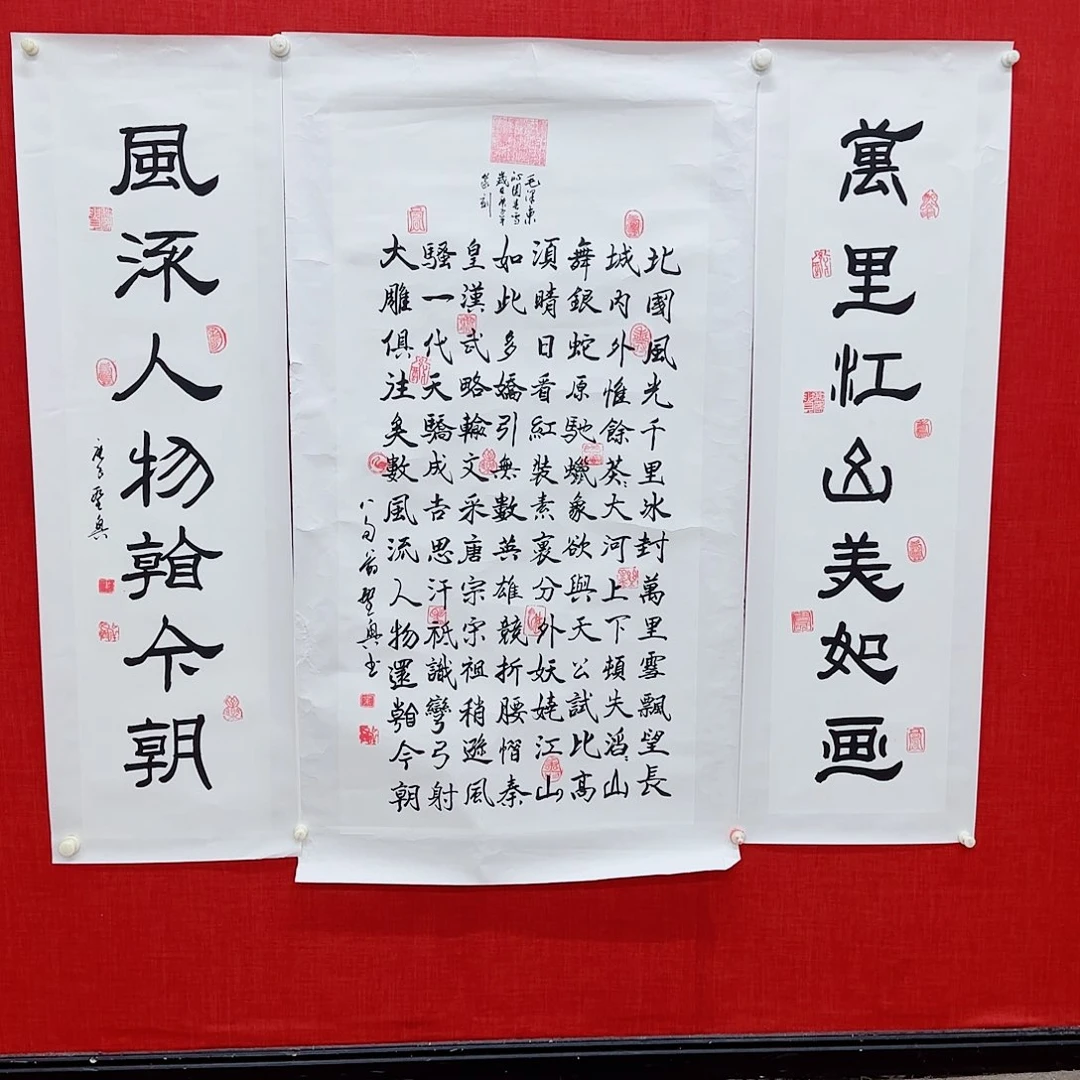 萬里江山美如画
毛澤東
沁園春雪
篆刻
北國風光千里冰封萬里雪飄望長
城内外惟餘莽〻大河上下頓失滔〻山
舞銀蛇原馳蠟象欲與天公試比高
須晴日看紅裝素裹分外妖嬈江山
如此多嬌引無數英雄競折腰惜秦
皇漢武略輸文采唐宗宋祖稍遜風
騷一代天驕成吉思汗祗識彎弓射
大雕俱往矣數風流人物還看今朝
八旬翁聖興书
風流人物看今朝
庚子聖興